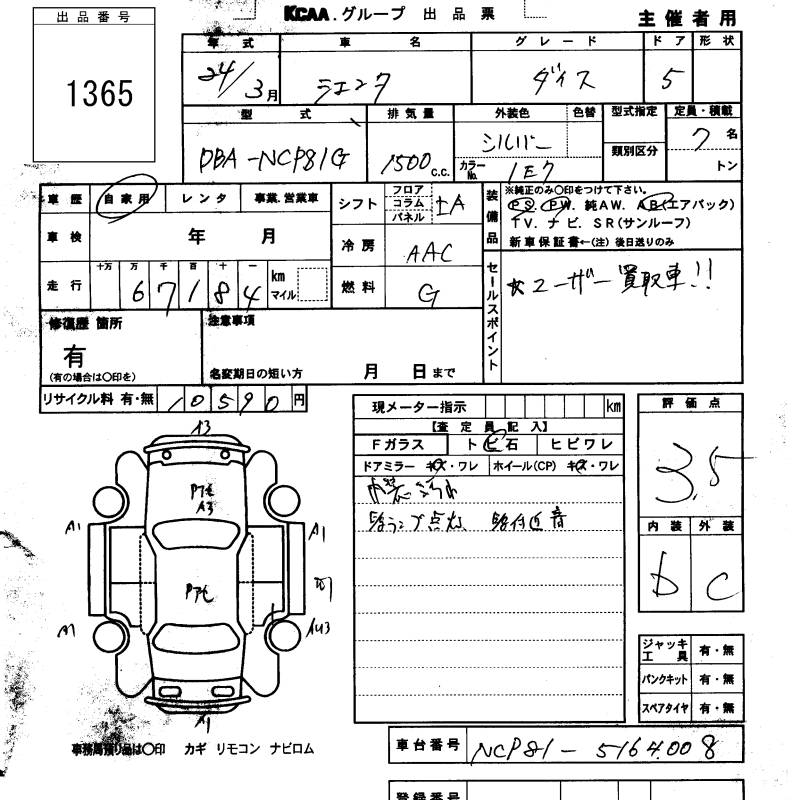 出品番号
KCAA.グループ 出品票
主催者用
1365
年式 車名 グレード ドア 形状
24/3月 シエンタ ダイス 5
型式 排気量 外装色 色替 型式指定 定員・積載
DBA-NCP81G 1500c.c. シルバー 7名
カラーNo. 1E7 類別区分 トン
車歴 自家用 レンタ 事業.営業車 シフト フロア コラム パネル IA
装備品 ※純正のみ〇印をつけて下さい。
PS. PW. 純AW. AB(エアバック)
TV. ナビ. SR(サンルーフ)
新車保証書←(注)後日送りのみ
車検 年 月 冷房 AAC
走行 十万 万 千 百 十 一
67184 km マイル 燃料 G
セールスポイント
☆ユーザー買取車!!
修復歴 箇所 注意事項
有
(有の場合は〇印を) 名変期日の短い方 月 日まで
リサイクル料 有・無 10590円
現メーター指示 km
評価点
3.5
【査定員記入】
Fガラス トビ石 ヒビワレ
ドアミラー キズ・ワレ ホイール(CP) キズ・ワレ
内装
ランプ点灯 音
内装 外装
b C
A3
A3
A1 A1
A1
ジャッキ工具 有・無
パンクキット 有・無
スペアタイヤ 有・無
事務局預り品は〇印 カギ リモコン ナビロム
車台番号 NCP81-5164008
登録番号